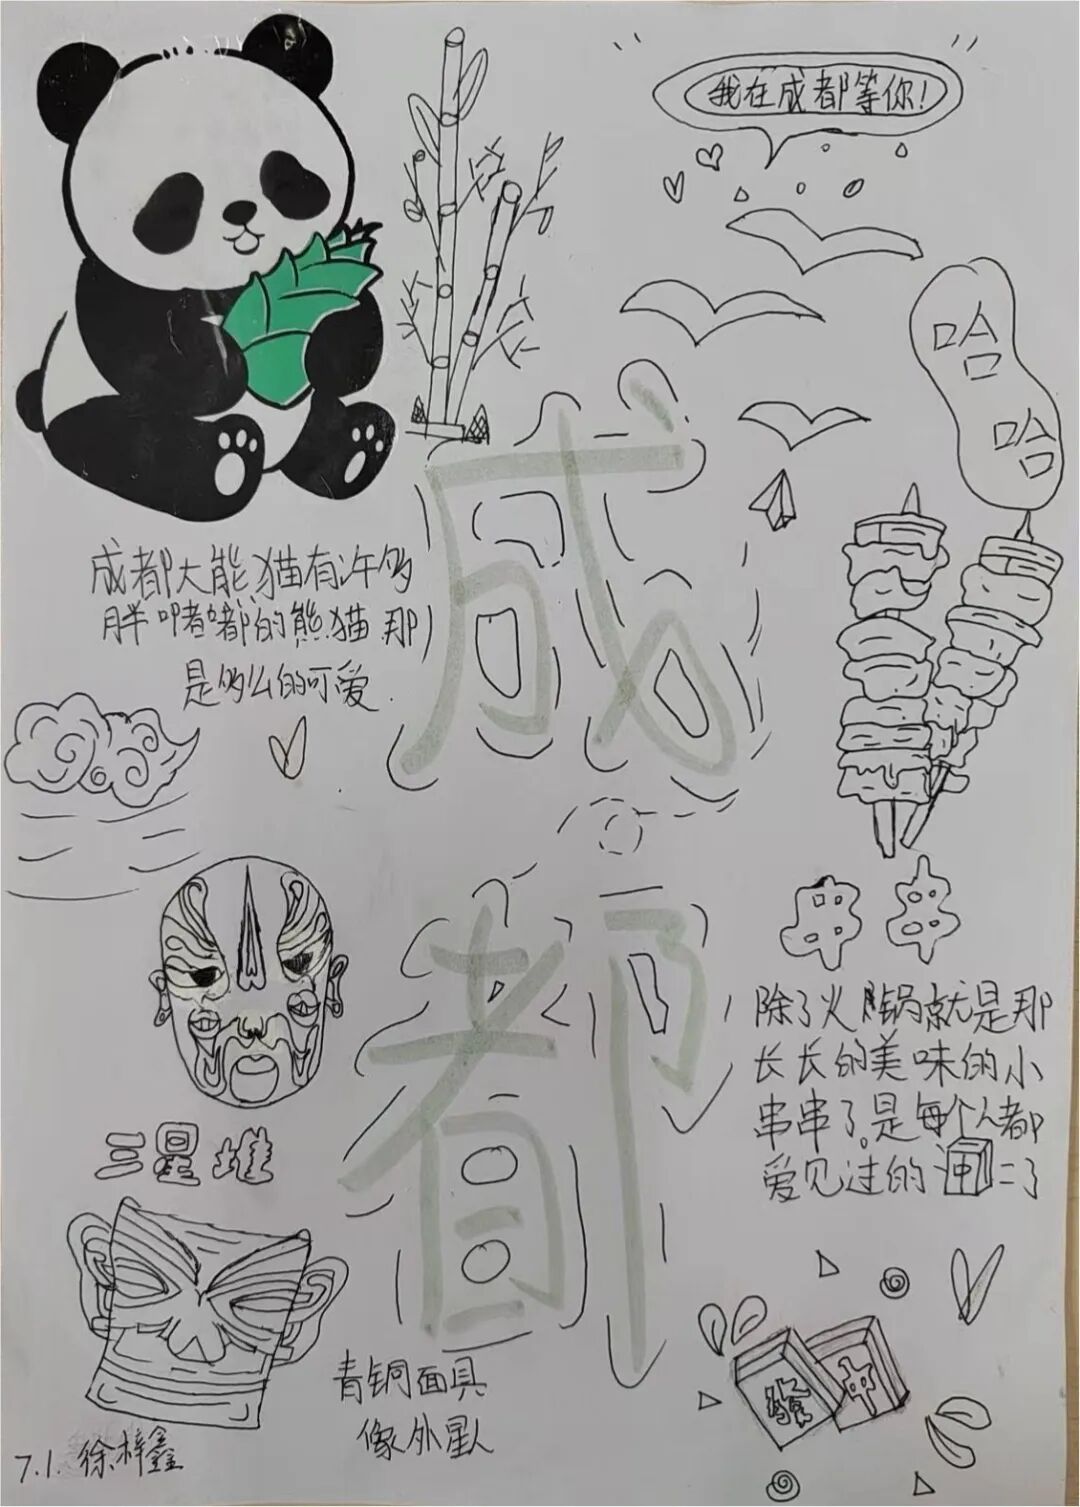 我在成都等你!
哈
哈
成
都
成都大能猫有许多
胖嘟嘟的熊猫那
是多么的可爱.
串 串
除了火锅就是那
长长的美味的小
串串了。是每个人都
爱见过的
三星堆
青铜面具
像外星人
發 中
7.1. 徐梓鑫